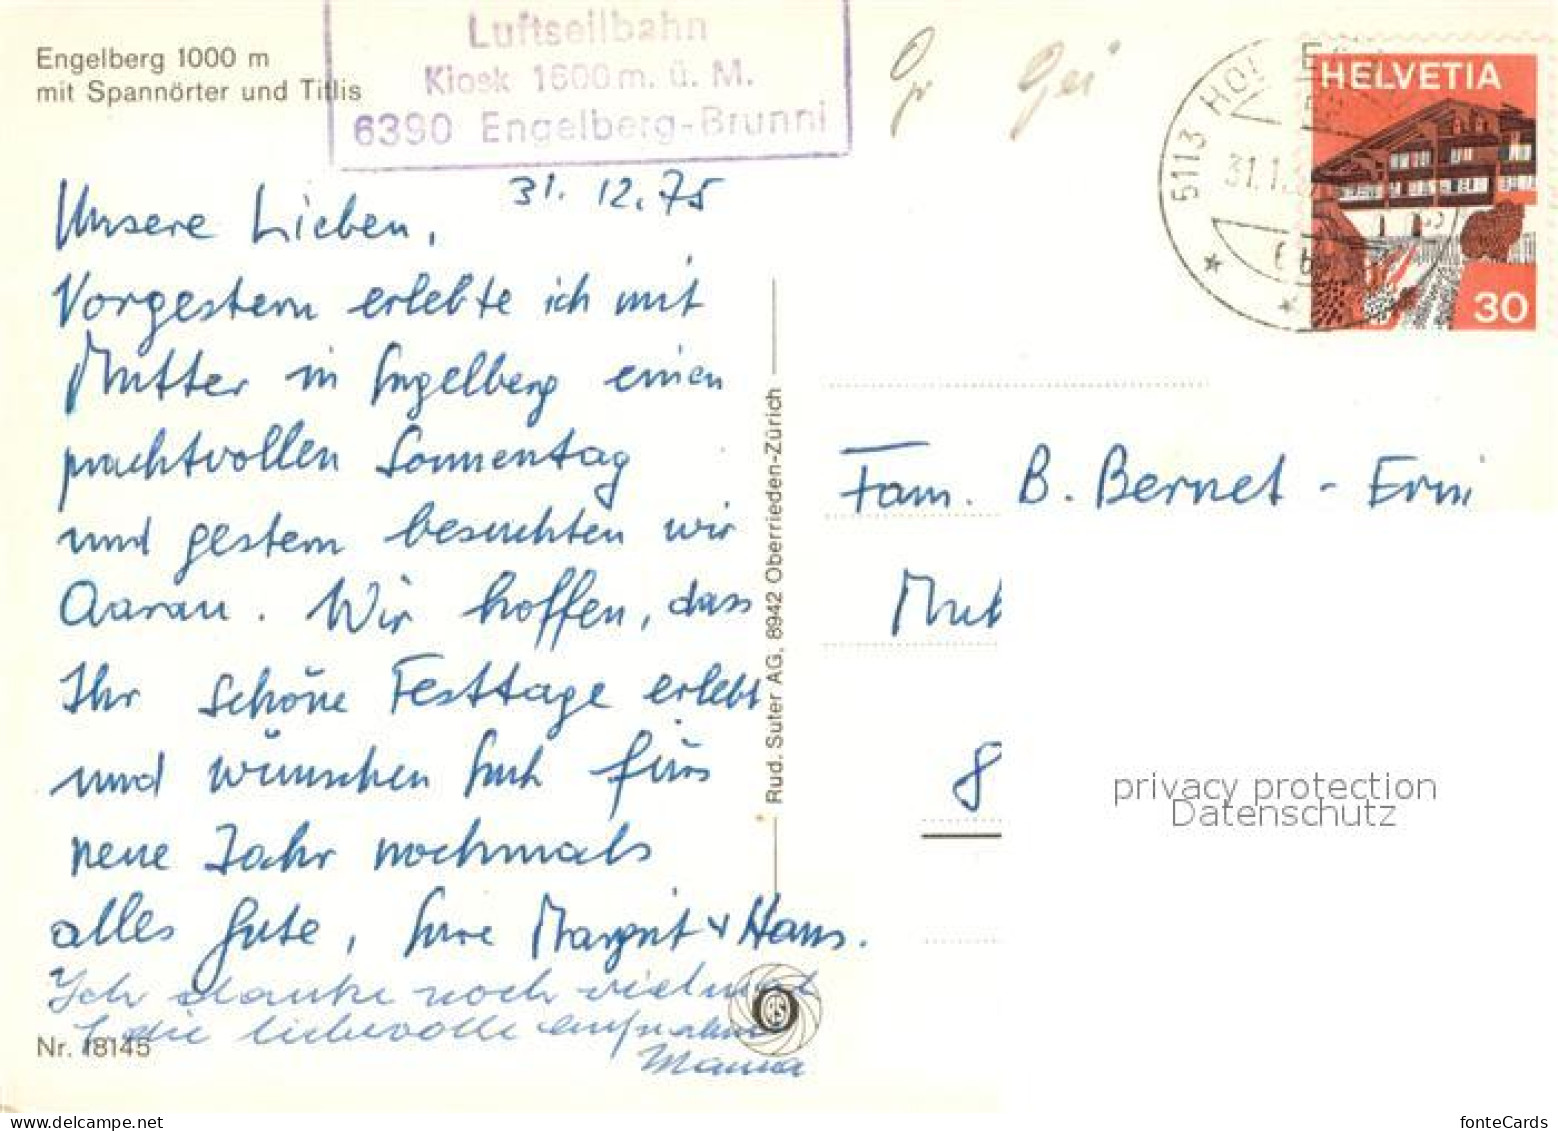 Luftseilbahn
Kiosk 1600 m. ü. M.
6390 Engelberg-Brunni
Engelberg 1000 m
mit Spannörter und Titlis
31. 12. 75
Unsere Lieben,
Vorgestern erlebte ich mit
Mutter in Engelberg einen
prachtvollen Sonnentag
und gestern besuchten wir
Aarau. Wir hoffen, dass
Ihr schöne Festtage erlebt
und wünschen Euch fürs
neue Jahr nochmals
alles Gute, Eure Margrit + Hans.
Ich danke noch vielmal
f. die liebevolle Aufnahme
Mamma
Nr. 18145
Rud. Suter AG, 8942 Oberrieden-Zürich
5113
31.1
HELVETIA
30
Fam. B. Bernet - Erni
8
privacy protection
Datenschutz
www.delcampe.net
fonteCards